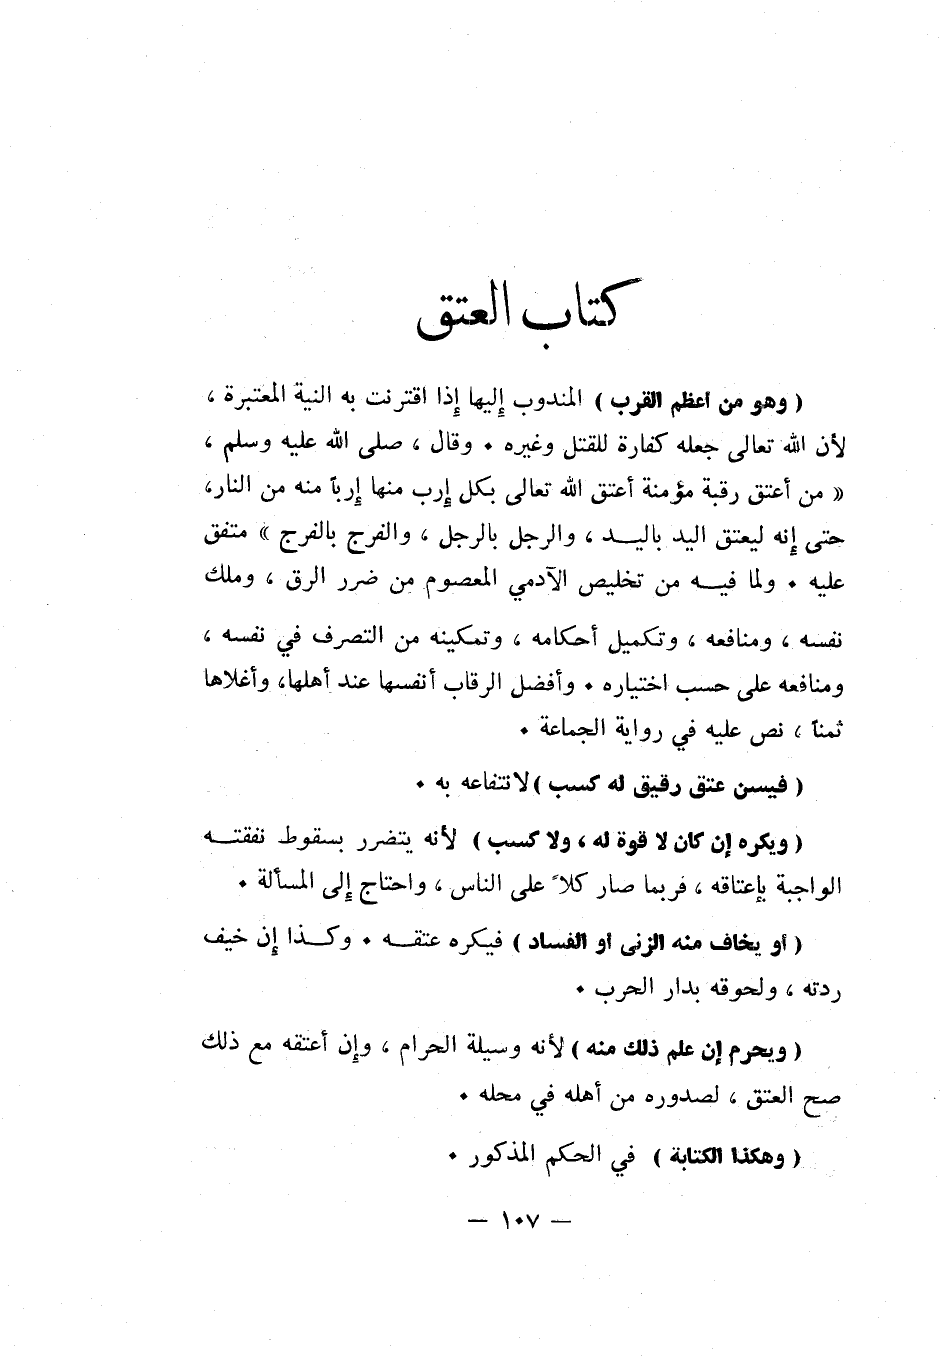 كتاب العتق
( وهو من أعظم القرب ) المندوب إليها إذا اقترنت به النية المعتبرة ،
لأن الله تعالى جعله كفارة للقتل وغيره . وقال ، صلى الله عليه وسلم ،
« من أعتق رقبة مؤمنة أعتق الله تعالى بكل إرب منها إرباً منه من النار،
حتى إنه ليعتق اليد باليــد ، والرجل بالرجل ، والفرج بالفرج » متفق
عليه . ولما فيــه من تخليص الآدمي المعصوم من ضرر الرق ، وملك
نفسه ، ومنافعه ، وتكميل أحكامه ، وتمكينه من التصرف في نفسه ،
ومنافعه على حسب اختياره . وأفضل الرقاب أنفسها عند أهلها، وأغلاها
ثمناً ، نص عليه في رواية الجماعة .
( فيسن عتق رقيق له كسب ) لانتفاعه به .
( ويكره إن كان لا قوة له ، ولا كسب ) لأنه يتضرر بسقوط نفقتــه
الواجبة بإعتاقه ، فربما صار كلاً على الناس ، واحتاج إلى المسألة .
( أو يخاف منه الزنى أو الفساد ) فيكره عتقــه . وكــذا إن خيف
ردته ، ولحوقه بدار الحرب .
( ويحرم إن علم ذلك منه ) لأنه وسيلة الحرام ، وإن أعتقه مع ذلك
صح العتق ، لصدوره من أهله في محله .
( وهكذا الكتابة ) في الحكم المذكور .
— ١٠٧ —